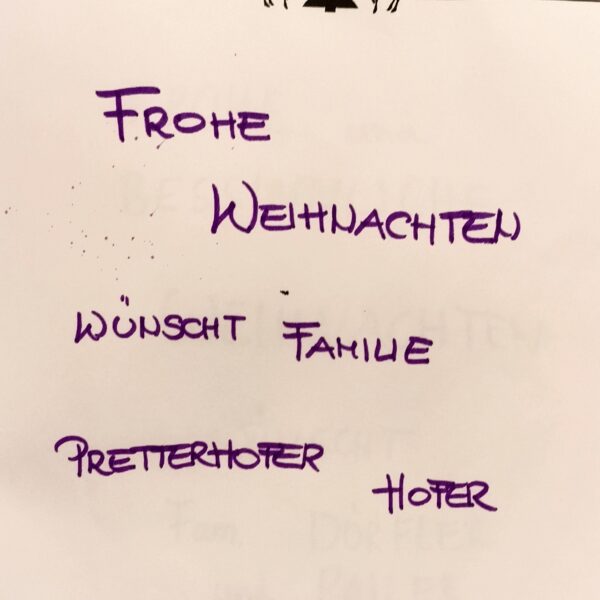 FROHE
WEIHNACHTEN
WÜNSCHT FAMILIE
PRETTERHOFER
HOFER